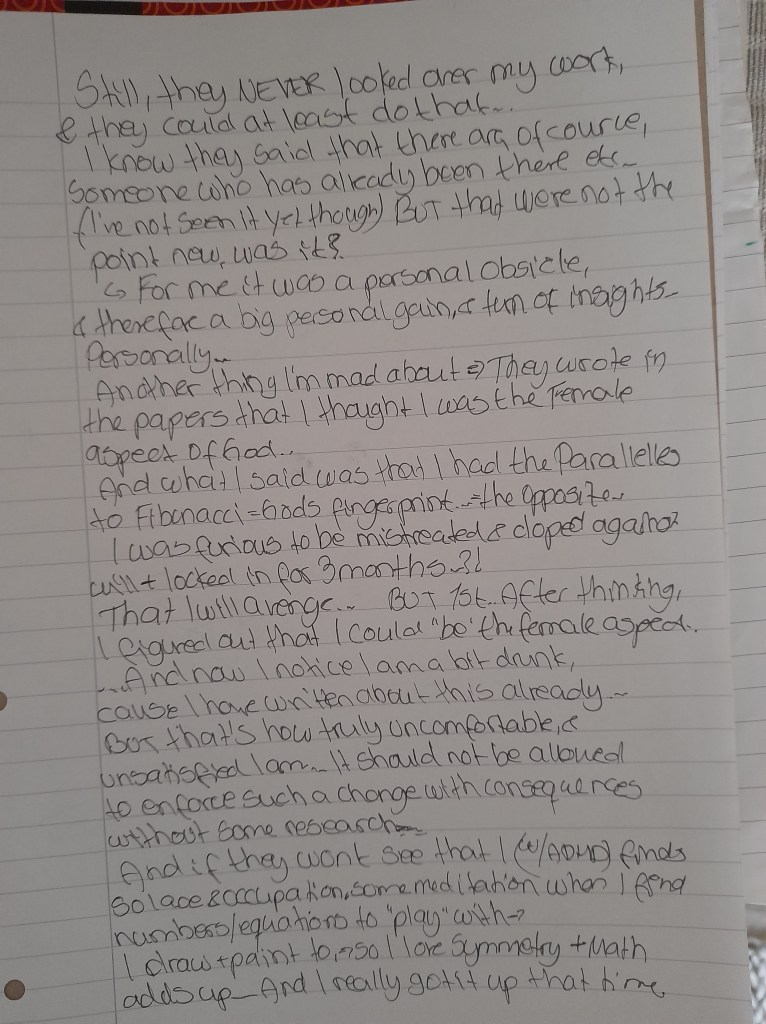 Still, they NEVER looked over my work,
& they could at least do that...
I know they said that there are, ofcource,
Someone who has already been there etc..
(I've not seen it yet though) BUT that were not the
point now, was it?
↳ For me it was a personal obsicle,
& therefor a big personal gain, & turn of insights
Personally..
Another thing I'm mad about => They wrote in
the papers that I thought I was the Female
aspect of God...
And what I said was that I had the Paralleles
to Fibunacci = Gods fingerprint..=the opposite..
I was furious to be mistreated & doped against
will + locked in for 3 months..?!
That I will avenge... BUT 1st.. After thinking,
I figured out that I could "be" the female aspect..
...And now I notice I am a bit drunk,
cause I have written about this already..
BUT that's how truly uncomfortable, &
unsatisfied I am.. It should not be allowed
to enforce such a change with consequences
without some research
And if they wont see that I (w/ADHD) finds
Solace & occupation, some meditation when I find
numbers/equations to "play" with →
I draw + paint to, → so I love Symmetry + Math
adds up_ And I really got it up that time,